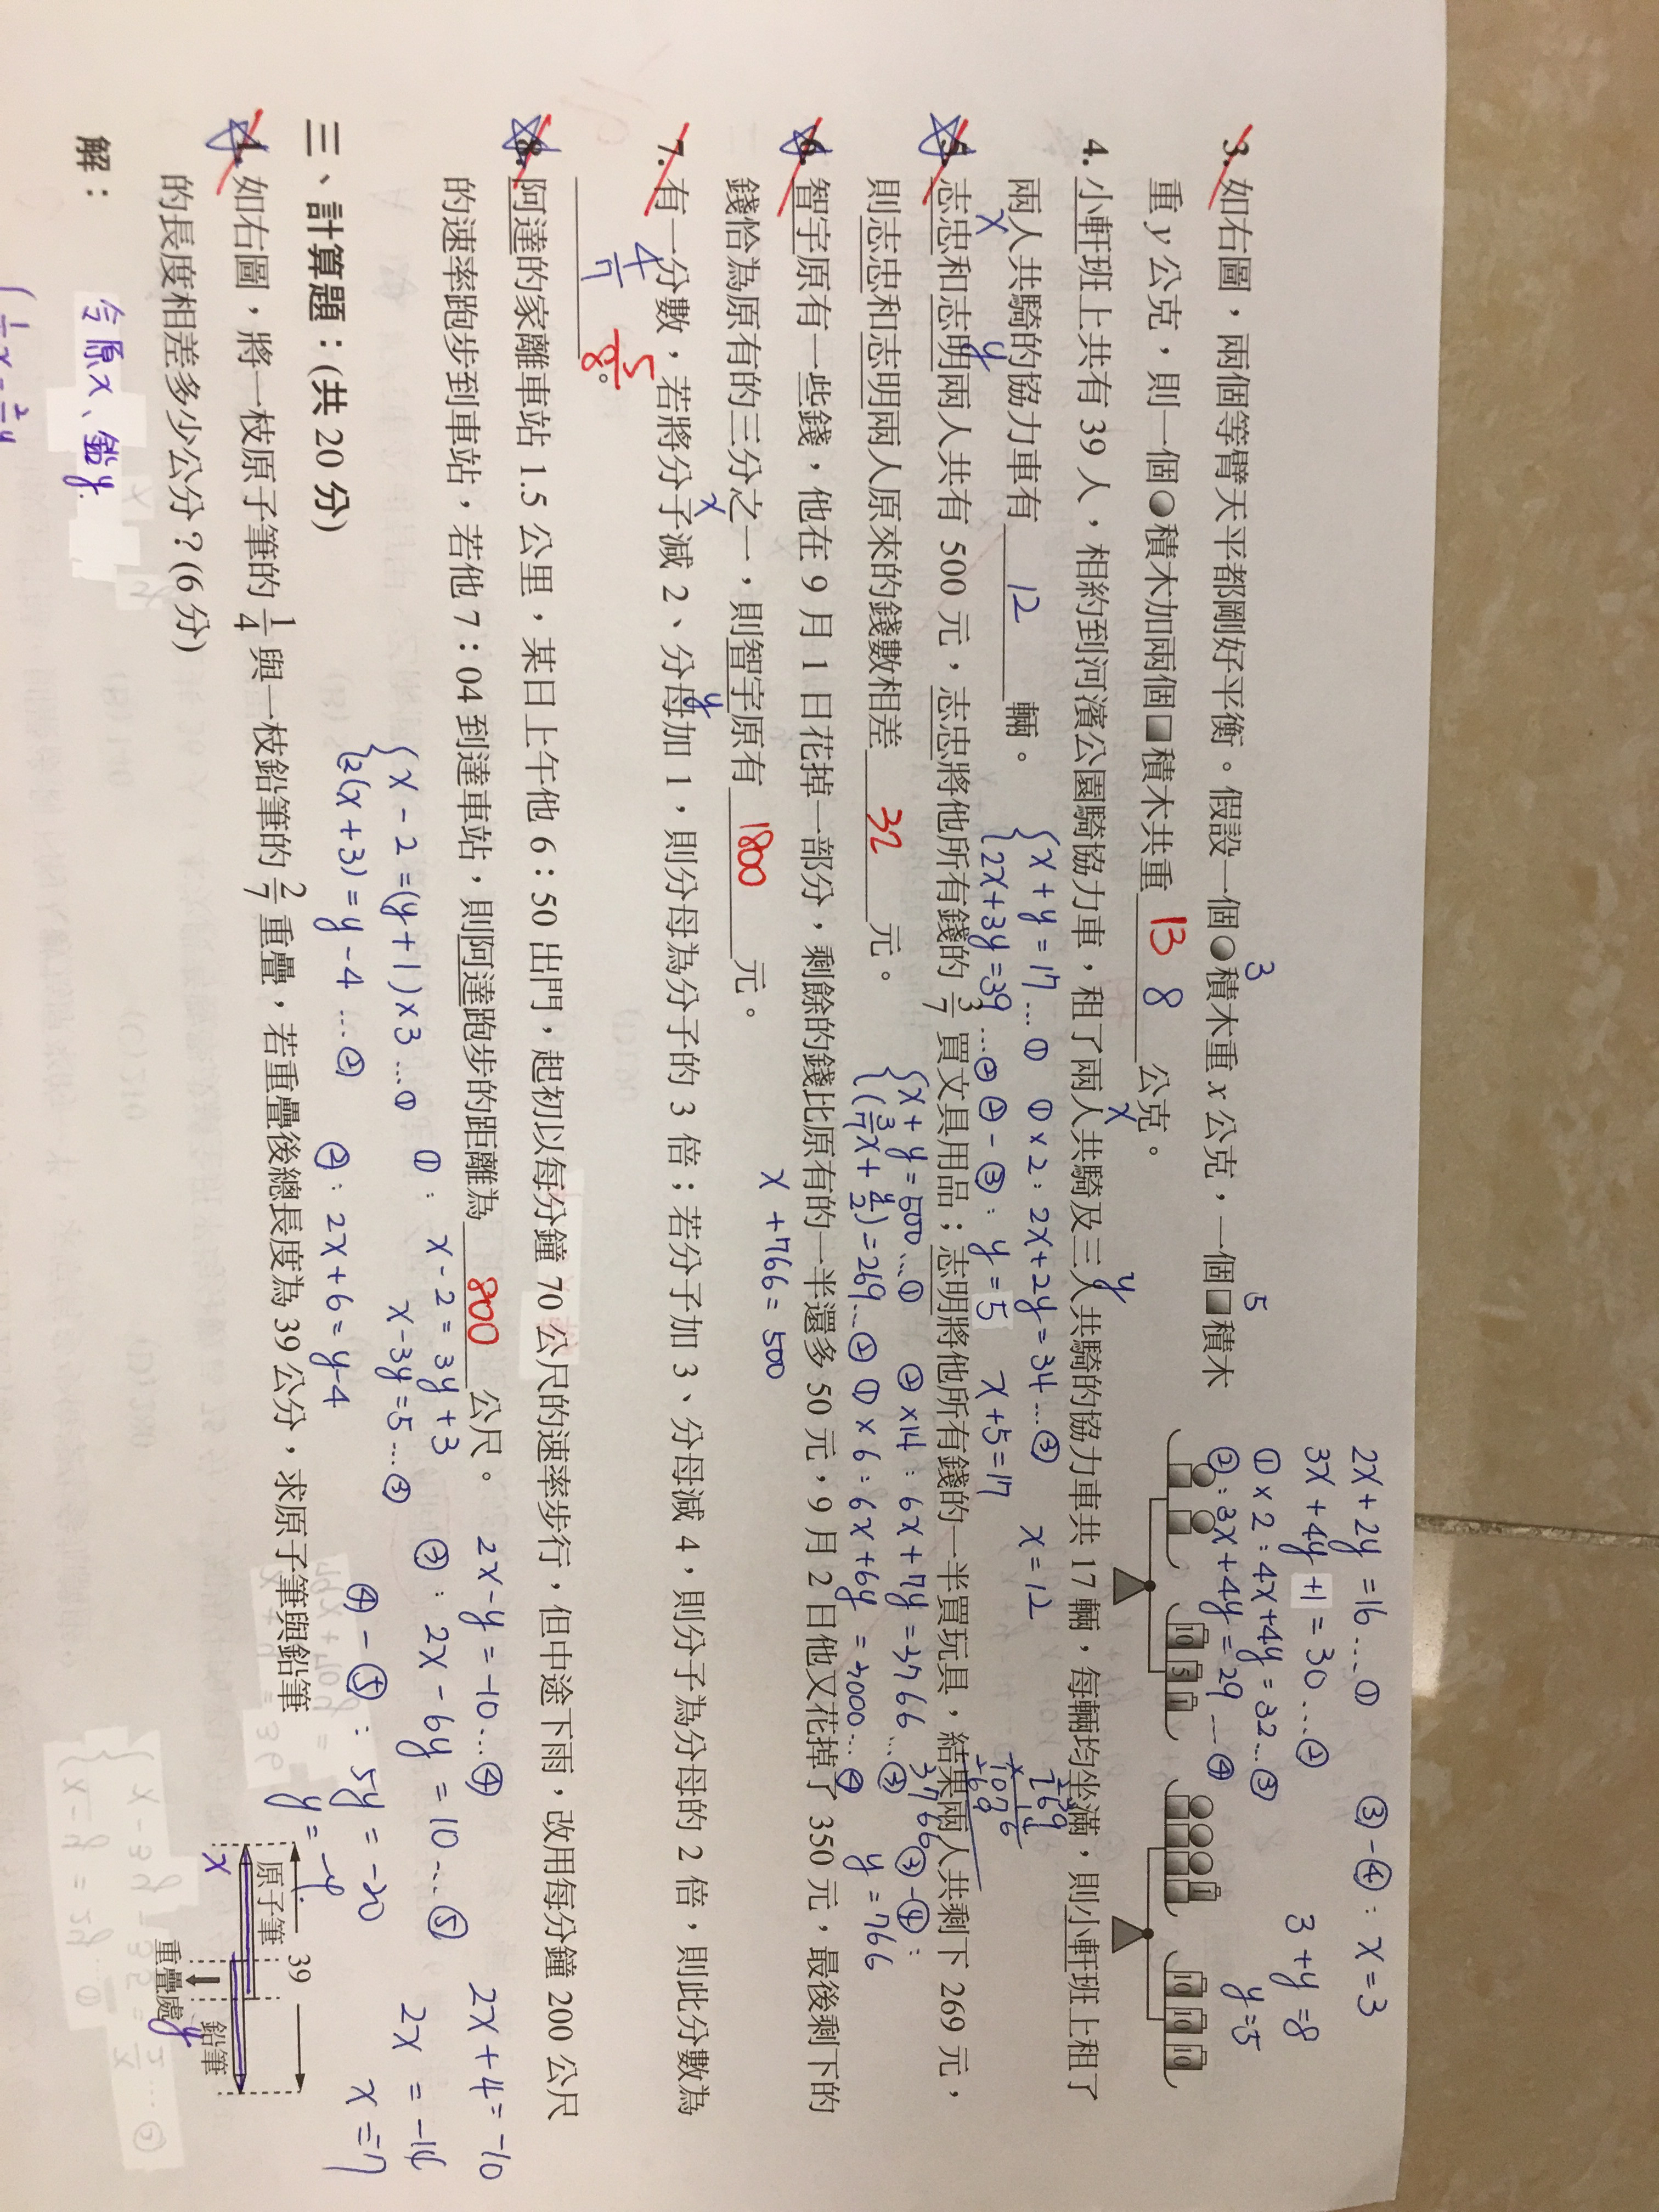 3. 如右圖，兩個等臂天平都剛好平衡。假設一個●積木重 x 公克，一個■積木
3
5
重 y 公克，則一個●積木加兩個■積木共重 13 8 公克。
2x+2y=16…①
3x+4y+1=30…②
①×2：4x+4y=32…③
②：3x+4y=29…④
③-④：x=3
3+y=8
y=5
10 5 1
1
10 10 10
4. 小軒班上共有 39 人，相約到河濱公園騎協力車，租了兩人共騎及三人共騎的協力車共 17 輛，每輛均坐滿，則小軒班上租了
x
y
兩人共騎的協力車有 12 輛。
x+y=17…①
2x+3y=39…②
①×2：2x+2y=34…③
②-③：y=5
x+5=17
x=12
5. 志忠和志明兩人共有 500 元，志忠將他所有錢的 3/7 買文具用品；志明將他所有錢的一半買玩具，結果兩人共剩下 269 元，
x
y
則志忠和志明兩人原來的錢數相差 32 元。
x+y=500…①
(3/7x+y/2)=269…②
②×14：6x+7y=3766…③
①×6：6x+6y=3000…④
③-④：
y=766
269
14
1076
269
3766
6. 智宇原有一些錢，他在 9 月 1 日花掉一部分，剩餘的錢比原有的一半還多 50 元，9 月 2 日他又花掉了 350 元，最後剩下的
錢恰為原有的三分之一，則智宇原有 1800 元。
x+766=500
7. 有一分數，若將分子減 2、分母加 1，則分母為分子的 3 倍；若分子加 3、分母減 4，則分子為分母的 2 倍，則此分數為
x
y
4/7 5/8。
8. 阿達的家離車站 1.5 公里，某日上午他 6：50 出門，起初以每分鐘 70 公尺的速率步行，但中途下雨，改用每分鐘 200 公尺
的速率跑步到車站，若他 7：04 到達車站，則阿達跑步的距離為 800 公尺。
x-2=(y+1)×3…①
2(x+3)=y-4…②
①：x-2=3y+3
x-3y=5…③
②：2x+6=y-4
2x-y=-10…④
③：2x-6y=10…⑤
④-⑤：5y=-20
y=-4
2x+4=-10
2x=-14
x=-7
三、計算題：(共 20 分)
1. 如右圖，將一枝原子筆的 1/4 與一枝鉛筆的 2/7 重疊，若重疊後總長度為 39 公分，求原子筆與鉛筆
的長度相差多少公分？(6 分)
39
原子筆
鉛筆
重疊處
x
y
解：
令原x、鉛y.